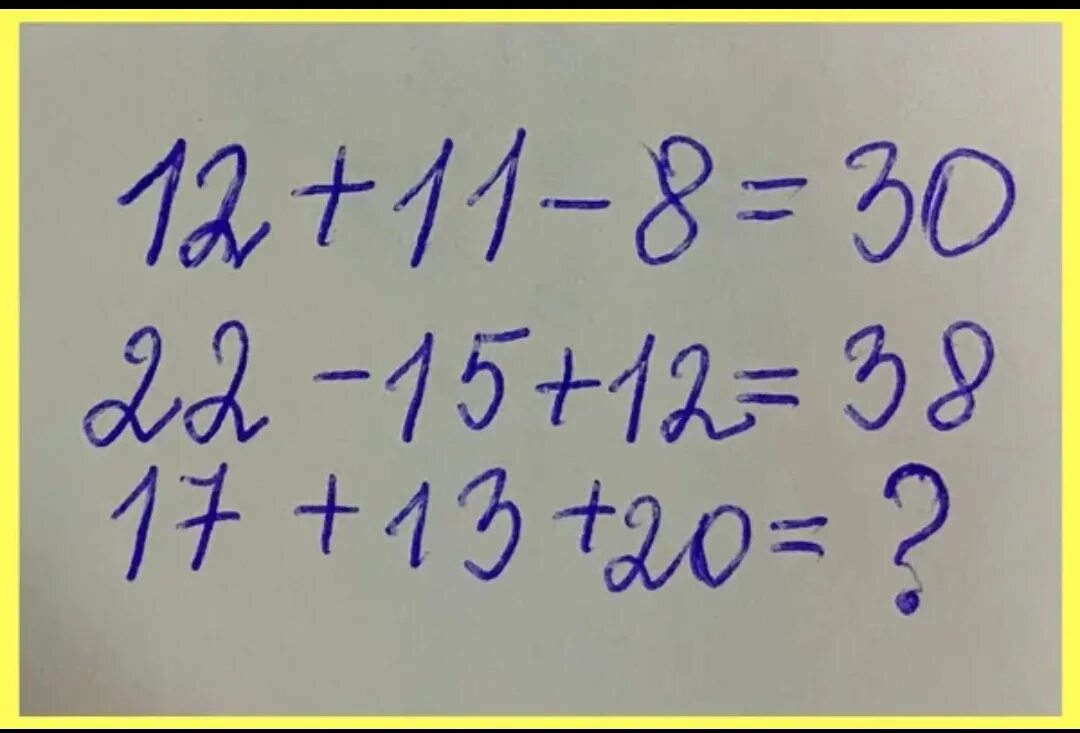 12 + 11 - 8 = 30
22 - 15 + 12 = 38
17 + 13 + 20 = ?